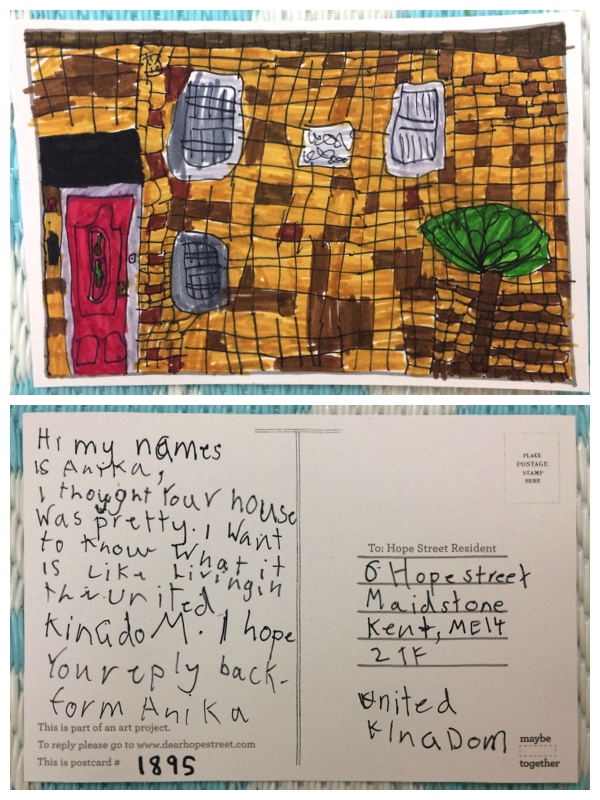 Hi my names
is Anika,
I thought Your house
was pretty. I want
to know what it
is Like Livingin
the united
KingdoM. I hope
You reply back-
form Anika
This is part of an art project.
To reply please go to www.dearhopestreet.com
This is postcard # 1895
PLACE
POSTAGE
STAMP
HERE
To: Hope Street Resident
6 Hope street
Maidstone
Kent, ME14
2TF
United
KingDom
maybe
together